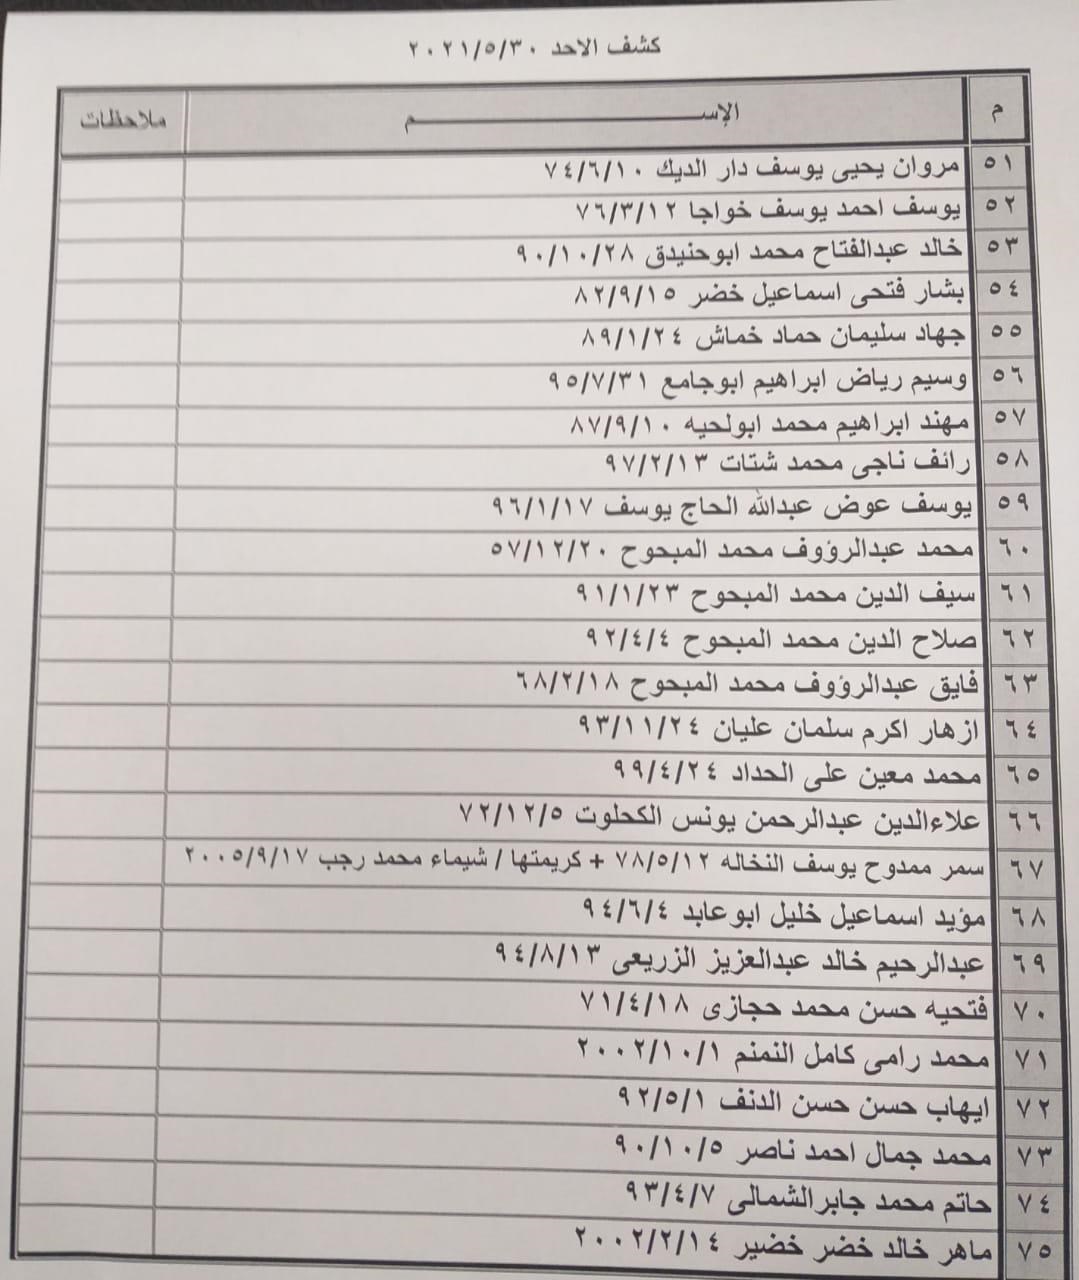 كشف الاحد ٢٠٢١/٥/٣٠
م الإســــــــم ملاحظات
٥١ مروان يحيى يوسف دار الديك ٧٤/٦/١٠
٥٢ يوسف احمد يوسف خواجا ٧٦/٣/١٢
٥٣ خالد عبدالفتاح محمد ابوحنيدق ٩٠/١٠/٢٨
٥٤ بشار فتحى اسماعيل خضر ٨٢/٩/١٥
٥٥ جهاد سليمان حماد خماش ٨٩/١/٢٤
٥٦ وسيم رياض ابراهيم ابوجامع ٩٥/٧/٣١
٥٧ مهند ابراهيم محمد ابولحيه ٨٧/٩/١٠
٥٨ رائف ناجى محمد شتات ٩٧/٢/١٣
٥٩ يوسف عوض عبدالله الحاج يوسف ٩٦/١/١٧
٦٠ محمد عبدالرؤوف محمد المبحوح ٥٧/١٢/٢٠
٦١ سيف الدين محمد المبحوح ٩١/١/٢٣
٦٢ صلاح الدين محمد المبحوح ٩٢/٤/٤
٦٣ فايق عبدالرؤوف محمد المبحوح ٦٨/٢/١٨
٦٤ ازهار اكرم سلمان عليان ٩٣/١١/٢٤
٦٥ محمد معين على الحداد ٩٩/٤/٢٤
٦٦ علاءالدين عبدالرحمن يونس الكحلوت ٧٢/١٢/٥
٦٧ سمر ممدوح يوسف النخاله ٧٨/٥/١٢ + كريمتها / شيماء محمد رجب ٢٠٠٥/٩/١٧
٦٨ مؤيد اسماعيل خليل ابوعابد ٩٤/٦/٤
٦٩ عبدالرحيم خالد عبدالعزيز الزريعى ٩٤/٨/١٣
٧٠ فتحيه حسن محمد حجازى ٧١/٤/١٨
٧١ محمد رامى كامل النمنم ٢٠٠٢/١٠/١
٧٢ ايهاب حسن حسن الدنف ٩٢/٥/١
٧٣ محمد جمال احمد ناصر ٩٠/١٠/٥
٧٤ حاتم محمد جابرالشمالى ٩٣/٤/٧
٧٥ ماهر خالد خضر خضير ٢٠٠٢/٢/١٤